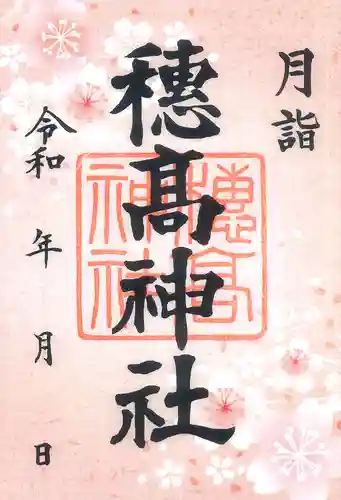 月詣
穂髙神社
令和 年 月 日
穂高
神社